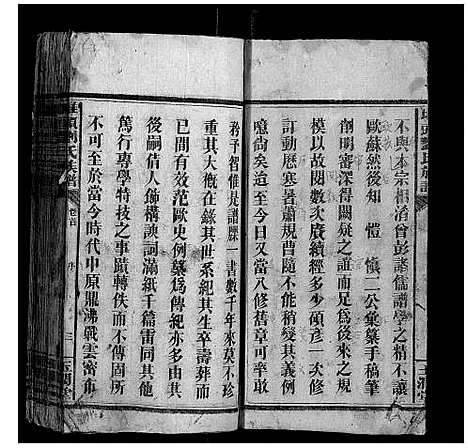 不與本宗相済曾彭諸儒譜學之精不讓
歐蘇然後知愷慎二公彙纂手稿筆
削明審深得闕疑之誼而足爲後來之規
模以故閱數次廣續經多少碩彥一次修
訂動歷寒暑蕭規曹隨不能稍變其義例
噫尙矣迨至今日又當八修舊章可率敢
矜予智惟是譜牒一書數千年來莫不珍
重其大概在錄其世系紀其生卒壽葬而
已間有效范歐史例纂爲傳紀亦多由其
後嗣倩人飾構諛詞滿紙千篇雷同其他
篤行專學特技之事蹟轉佚而不傳固所
不可至於當今時代中原鼎沸戰雲密布
氏族譜
卷首
序
三
玉潤堂